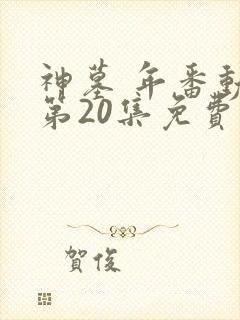 神墓 年番動
第20集免費
賀俊